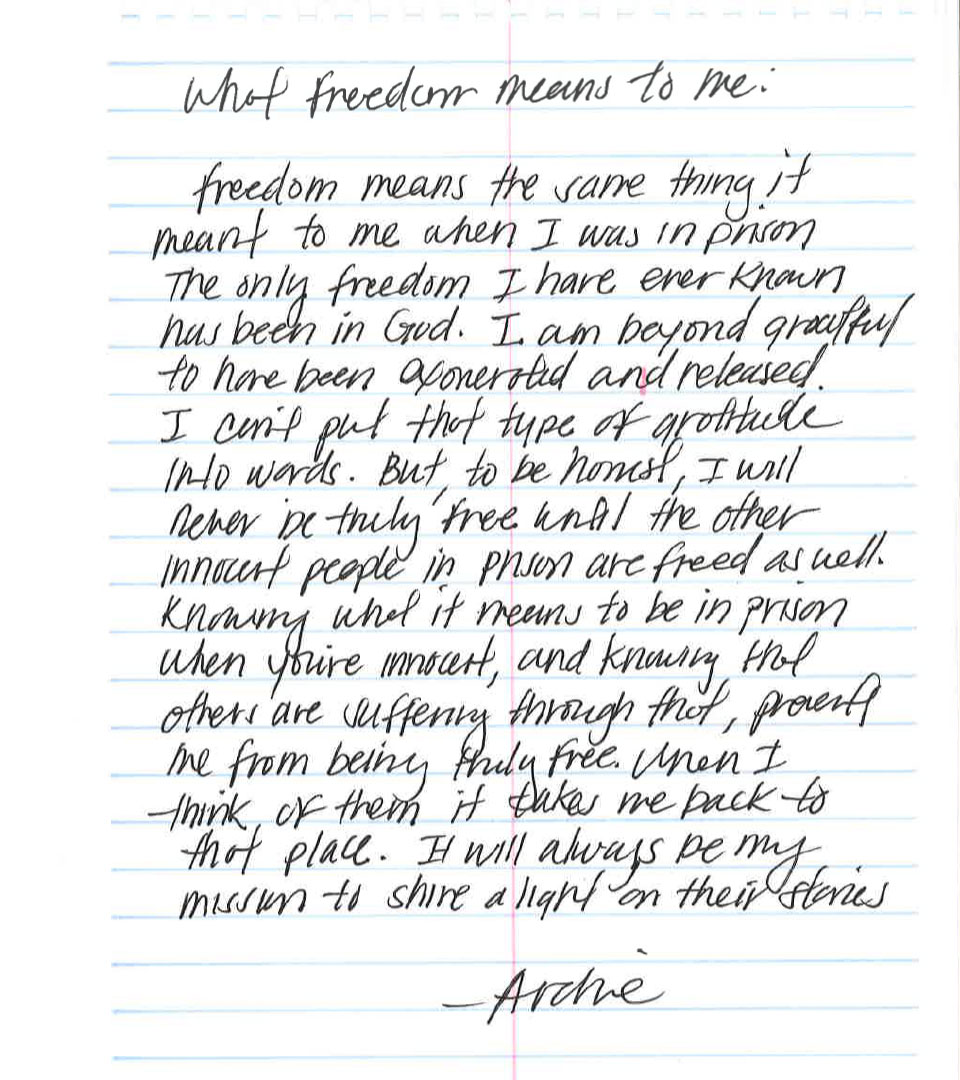 What freedom means to me:
freedom means the same thing it
meant to me when I was in prison
The only freedom I have ever known
has been in God. I am beyond greatful
to have been exonerated and released.
I can't put that type of gratitude
into words. But, to be honest, I will
never be truly free until the other
innocent people in prison are freed as well.
Knowing what it means to be in prison
when you're innocent, and knowing that
others are suffering through that, prevents
me from being truly free. When I
think of them it takes me back to
that place. It will always be my
mission to shine a light on their stories
- Archie